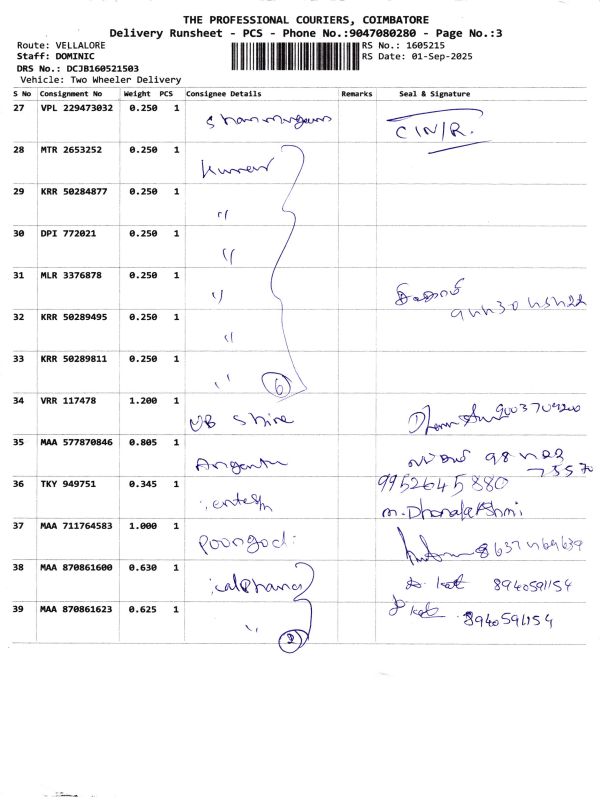 THE PROFESSIONAL COURIERS, COIMBATORE
Delivery Runsheet - PCS - Phone No.:9047080280 - Page No.:3
Route: VELLALORE
Staff: DOMINIC
DRS No.: DCJB160521503
Vehicle: Two Wheeler Delivery
RS No.: 1605215
RS Date: 01-Sep-2025
S No Consignment No Weight PCS Consignee Details Remarks Seal & Signature
27 VPL 229473032 0.250 1
28 MTR 2653252 0.250 1
29 KRR 50284877 0.250 1 "
30 DPI 772021 0.250 1 "
31 MLR 3376878 0.250 1 "
32 KRR 50289495 0.250 1 "
33 KRR 50289811 0.250 1 "
6
34 VRR 117478 1.200 1
35 MAA 577870846 0.805 1
36 TKY 949751 0.345 1 9952645880
m. Dhanalakshmi
37 MAA 711764583 1.000 1 Poongodi
38 MAA 870861600 0.630 1 8940591154
39 MAA 870861623 0.625 1 " 8940591154
2